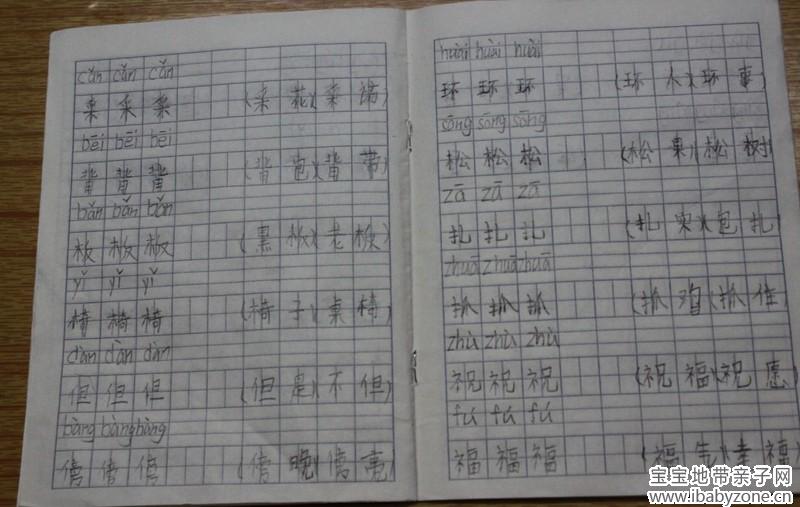 cǎn cǎn cǎn
bēi bēi bēi
背 背 背 (背 包)(背 带)
bǎn bǎn bǎn
板 板 板 (黑 板)(老 板)
yǐ yǐ yǐ
椅 椅 椅 (椅 子)(桌 椅)
dàn dàn dàn
但 但 但 (但 是)(不 但)
bàng bàng bàng
傍 傍 傍 (傍 晚)(傍 亮)
huài huài huài
坏 坏 坏 (坏 人)(坏 事)
sōng sōng sōng
松 松 松 (松 果)(松 树)
zā zā zā
扎 扎 扎 (扎 实)(包 扎)
zhuā zhuā zhuā
抓 抓 抓 (抓 鸡)(抓 住)
zhù zhù zhù
祝 祝 祝 (祝 福)(祝 愿)
fú fú fú
福 福 福 (福 气)(幸 福)
宝宝地带亲子网
www.ibabyzone.cn